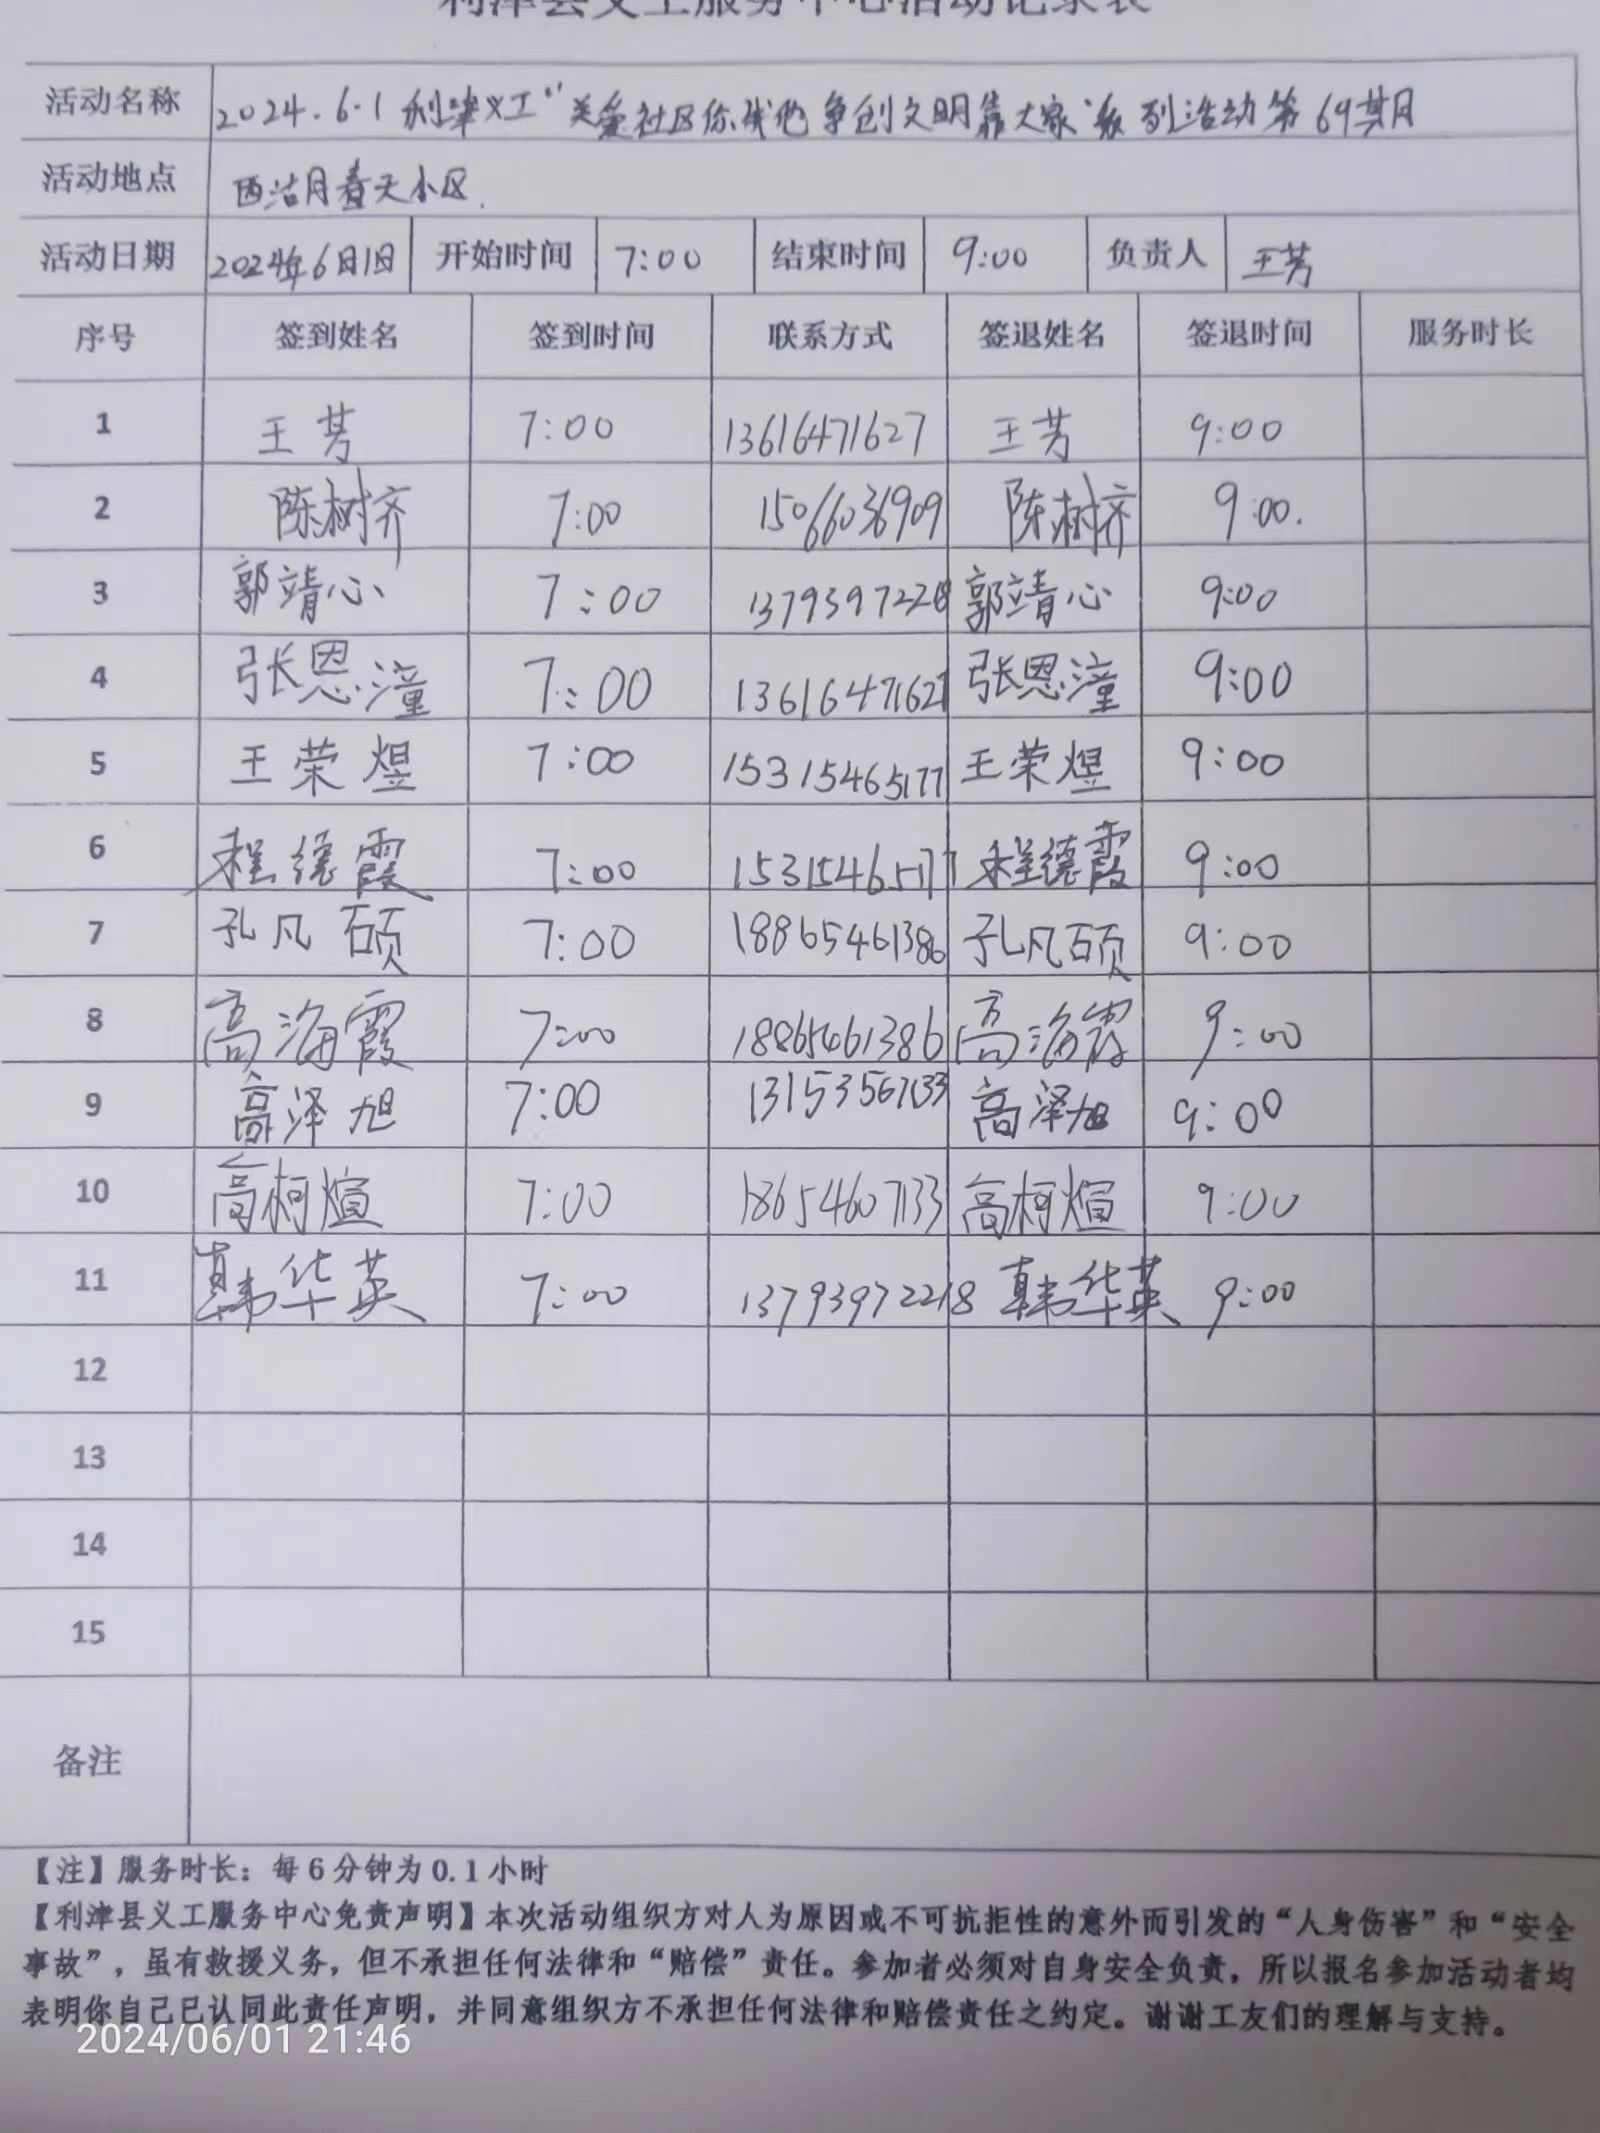 利津县义工服务中心活动记录表
活动名称 2024.6.1 利津义工“关爱社区你我他 争创文明靠大家”系列活动第69期
活动地点 西洁月春天小区.
活动日期 2024年6月1日 开始时间 7:00 结束时间 9:00 负责人 王芳
序号 签到姓名 签到时间 联系方式 签退姓名 签退时间 服务时长
1 王芳 7:00 13616471627 王芳 9:00
2 陈树齐 7:00 15066036909 陈树齐 9:00.
3 郭靖心 7:00 郭靖心 9:00
4 张恩潼 7:00 13616471627 张恩潼 9:00
5 王荣煜 7:00 15315465177 王荣煜 9:00
6 程德霞 7:00 15315465177 程德霞 9:00
7 孔凡硕 7:00 18865461386 孔凡硕 9:00
8 高海霞 7:00 18865461386 高海霞 9:00
9 高泽旭 7:00 13153567133 高泽旭 9:00
10 高柯煊 7:00 18654607133 高柯煊 9:00
11 韩华英 7:00 13793972218 韩华英 9:00
12
13
14
15
备注
【注】服务时长：每6分钟为0.1小时
【利津县义工服务中心免责声明】本次活动组织方对人为原因或不可抗拒性的意外而引发的“人身伤害”和“安全
事故”，虽有救援义务，但不承担任何法律和“赔偿”责任。参加者必须对自身安全负责，所以报名参加活动者均
表明你自己已认同此责任声明，并同意组织方不承担任何法律和赔偿责任之约定。谢谢工友们的理解与支持。
2024/06/01 21:46